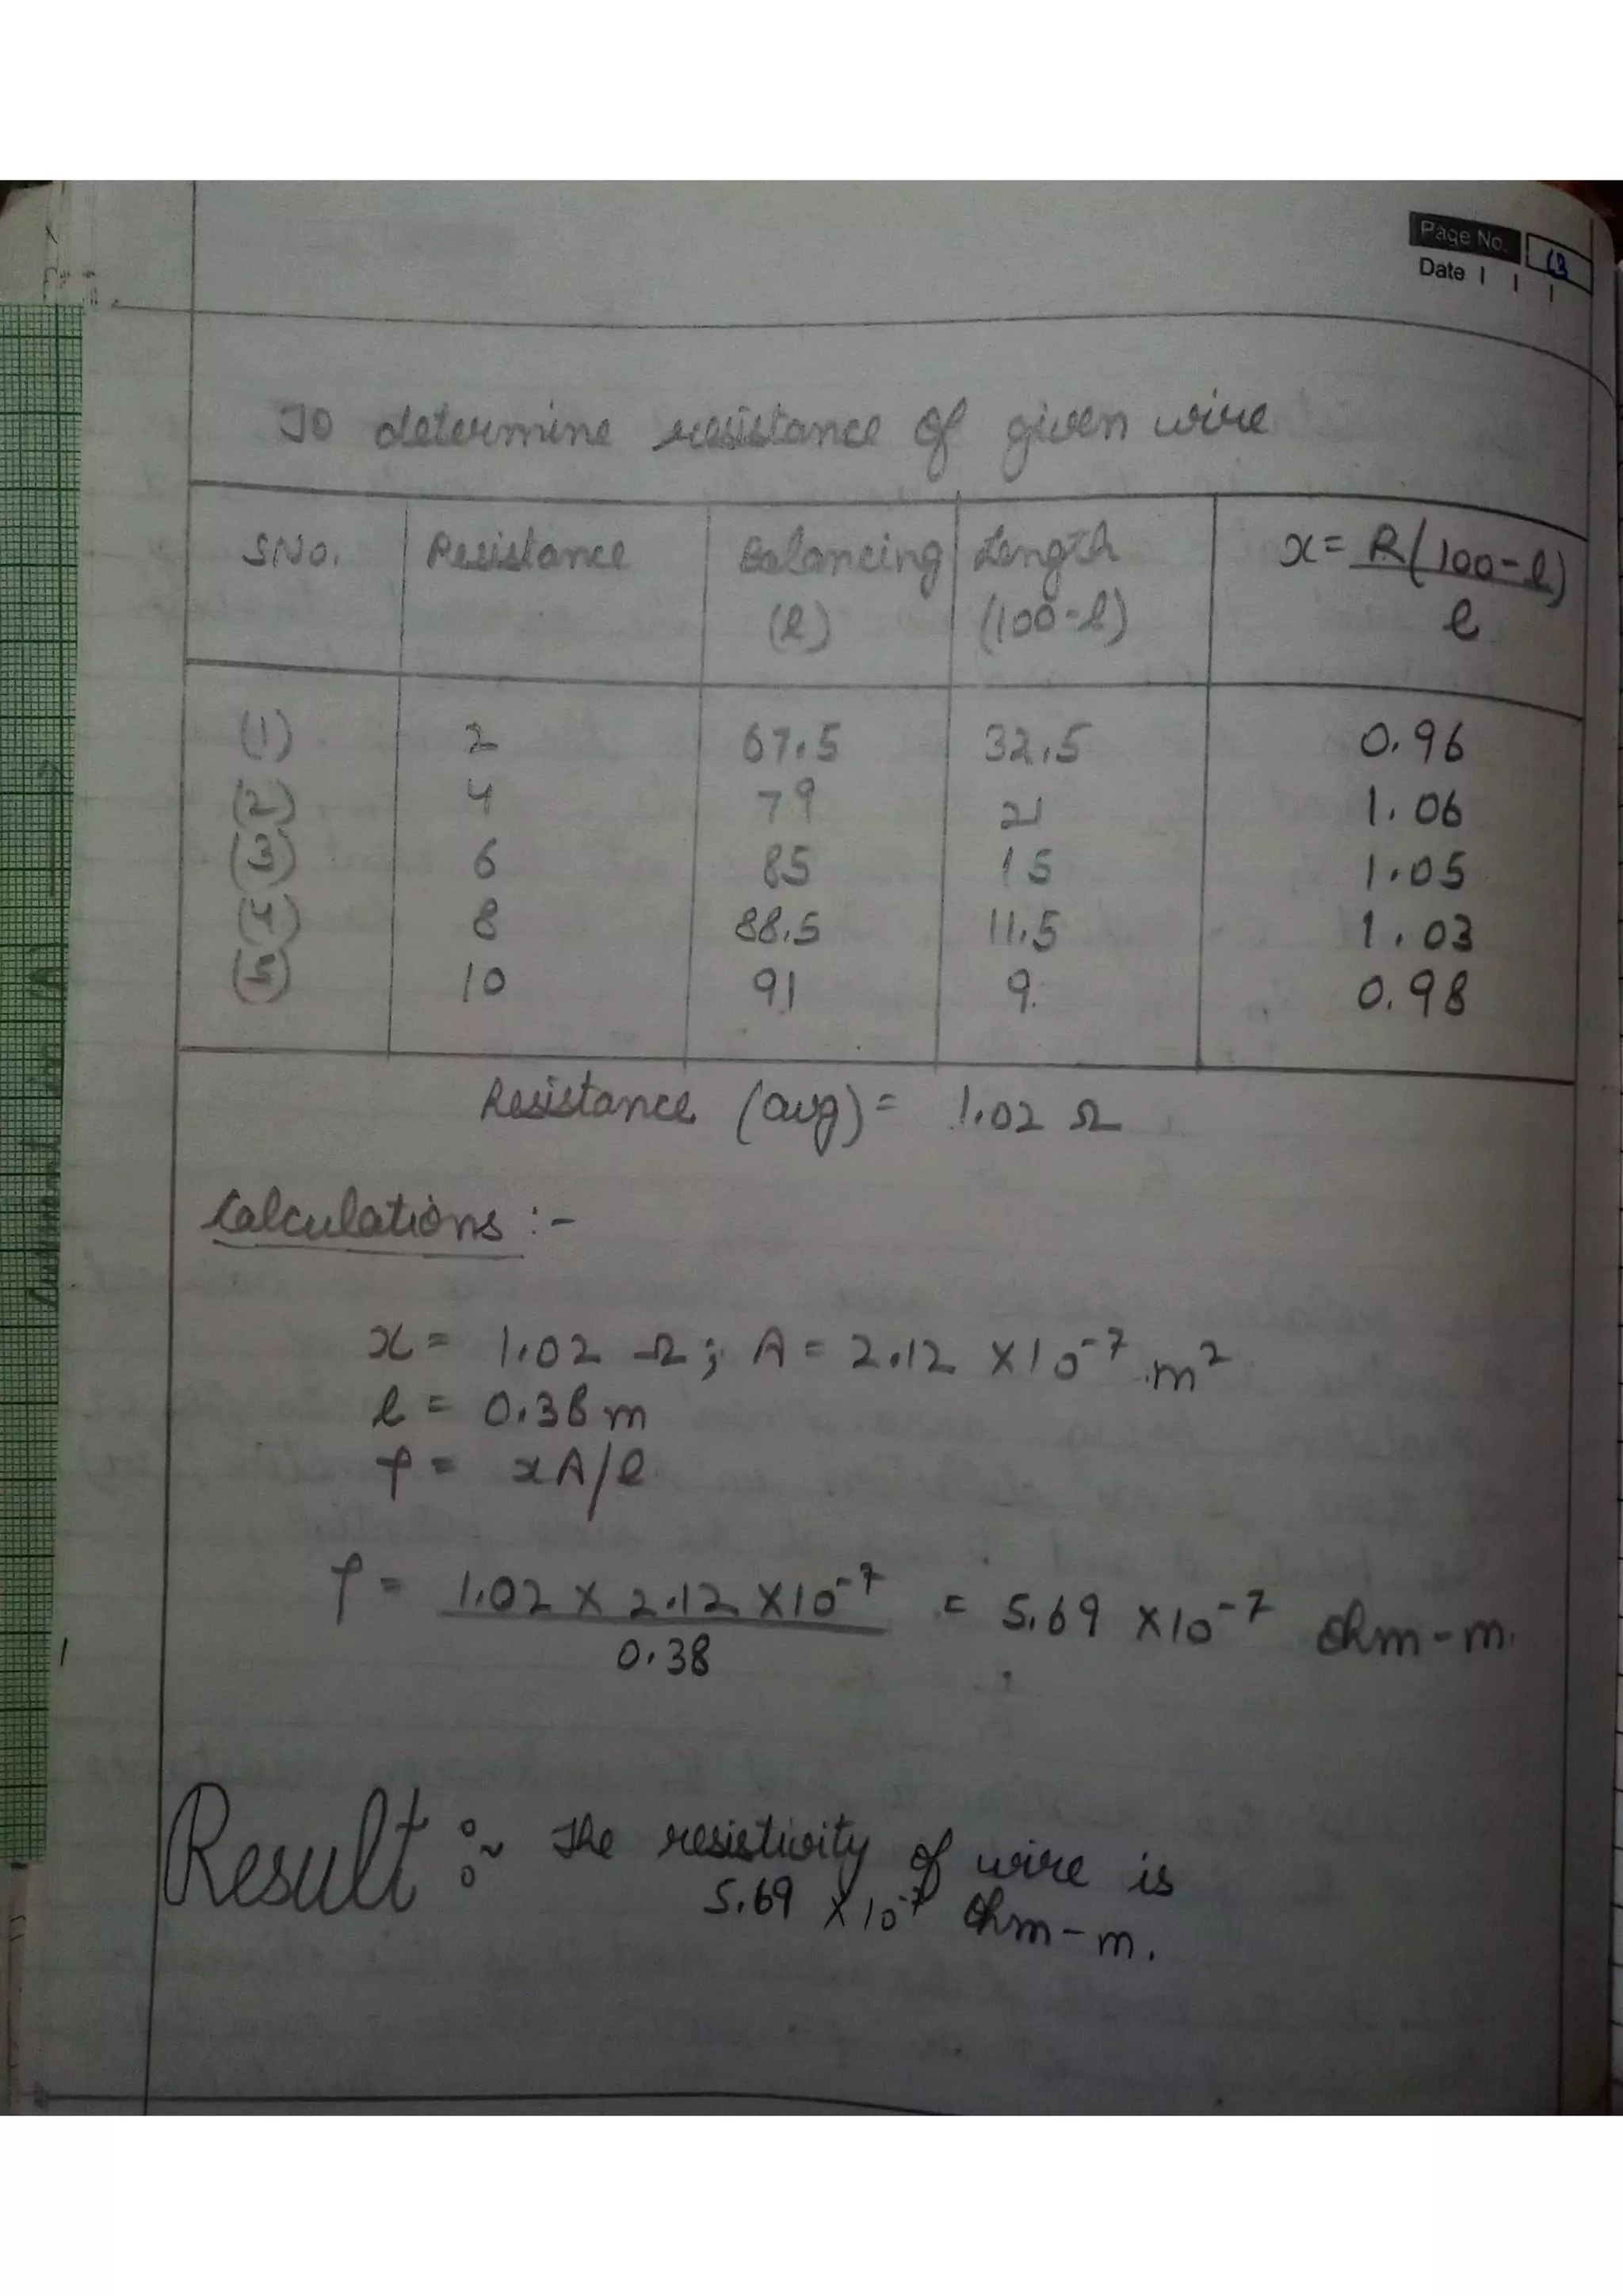 Page No. 13
Date
To determine resistance of given wire
SNo. Resistance Balancing (l) Length (100-l) x = R(100-l) / l
(1) 2 67.5 32.5 0.96
(2) 4 79 21 1.06
(3) 6 85 15 1.05
(4) 8 88.5 11.5 1.03
(5) 10 91 9 0.98
Resistance (avg) = 1.02 Ω
Calculations :-
x = 1.02 Ω ; A = 2.12 × 10⁻⁷ m²
l = 0.38 m
ρ = xA/l
ρ = 1.02 × 2.12 × 10⁻⁷ / 0.38 = 5.69 × 10⁻⁷ ohm-m.
Result :~ The resistivity of wire is
5.69 × 10⁻⁷ ohm-m.